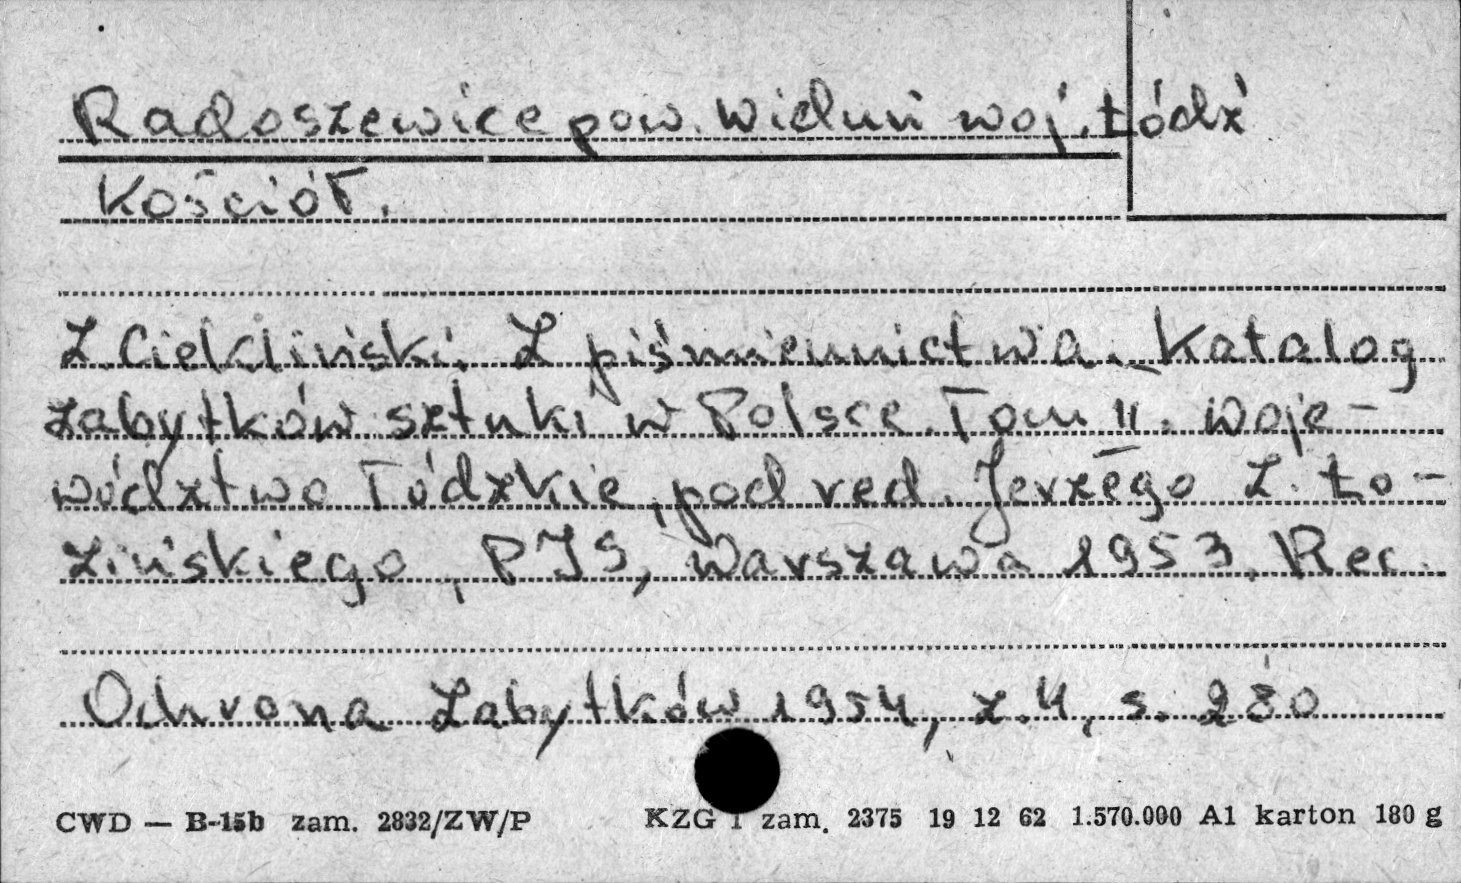 Radoszewice pow. Wieluń woj. Łódź
Kościół.
Z. Ciekliński. Z piśmiennictwa. Katalog
zabytków sztuki w Polsce. Tom II. Woje-
wództwo łódzkie, pod red. Jerzego Z. Ło-
zińskiego, PIS, Warszawa 1953. Rec.
Ochrona Zabytków 1954, z.4, s. 280
CWD — B-15b zam. 2832/ZW/P KZG 1 zam. 2375 19 12 62 1.570.000 A1 karton 180 g